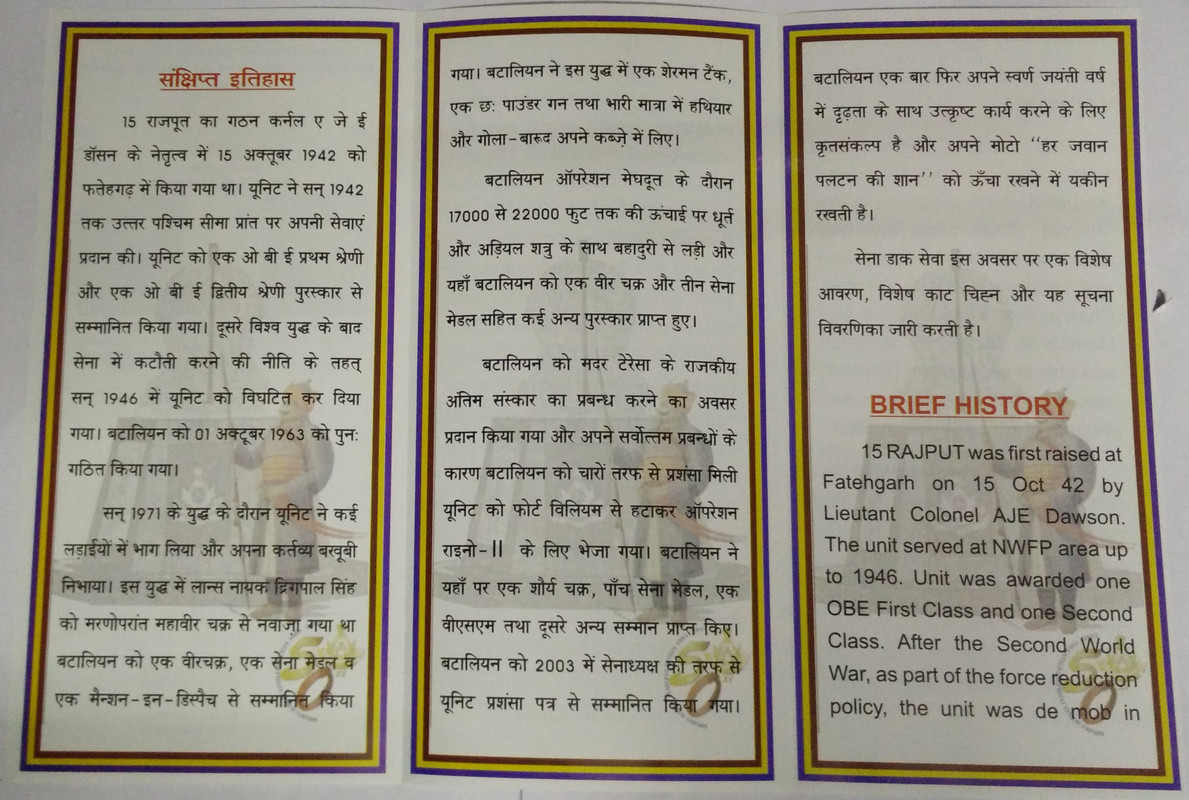 संक्षिप्त इतिहास
15 राजपूत का गठन कर्नल ए जे ई
डॉसन के नेतृत्व में 15 अक्तूबर 1942 को
फतेहगढ़ में किया गया था। यूनिट ने सन् 1942
तक उत्तर पश्चिम सीमा प्रांत पर अपनी सेवाएं
प्रदान की। यूनिट को एक ओ बी ई प्रथम श्रेणी
और एक ओ बी ई द्वितीय श्रेणी पुरस्कार से
सम्मानित किया गया। दूसरे विश्व युद्ध के बाद
सेना में कटौती करने की नीति के तहत्
सन् 1946 में यूनिट को विघटित कर दिया
गया। बटालियन को 01 अक्टूबर 1963 को पुन:
गठित किया गया।
सन् 1971 के युद्ध के दौरान यूनिट ने कई
लड़ाईयों में भाग लिया और अपना कर्तव्य बखूबी
निभाया। इस युद्ध में लान्स नायक द्रिगपाल सिंह
को मरणोपरांत महावीर चक्र से नवाजा गया था
बटालियन को एक वीरचक्र, एक सेना मेडल व
एक मैन्शन-इन-डिस्पैच से सम्मानित किया
गया। बटालियन ने इस युद्ध में एक शेरमन टैंक,
एक छ: पाउंडर गन तथा भारी मात्रा में हथियार
और गोला-बारूद अपने कब्ज़े में लिए।
बटालियन ऑपरेशन मेघदूत के दौरान
17000 से 22000 फुट तक की ऊंचाई पर धूर्त
और अड़ियल शत्रु के साथ बहादुरी से लड़ी और
यहाँ बटालियन को एक वीर चक्र और तीन सेना
मेडल सहित कई अन्य पुरस्कार प्राप्त हुए।
बटालियन को मदर टेरेसा के राजकीय
अंतिम संस्कार का प्रबन्ध करने का अवसर
प्रदान किया गया और अपने सर्वोत्तम प्रबन्धों के
कारण बटालियन को चारों तरफ से प्रशंसा मिली
यूनिट को फोर्ट विलियम से हटाकर ऑपरेशन
राइनो-II के लिए भेजा गया। बटालियन ने
यहाँ पर एक शौर्य चक्र, पाँच सेना मेडल, एक
वीएसएम तथा दूसरे अन्य सम्मान प्राप्त किए।
बटालियन को 2003 में सेनाध्यक्ष की तरफ से
यूनिट प्रशंसा पत्र से सम्मानित किया गया।
बटालियन एक बार फिर अपने स्वर्ण जयंती वर्ष
में दृढ़ता के साथ उत्कृष्ट कार्य करने के लिए
कृतसंकल्प है और अपने मोटो "हर जवान
पलटन की शान" को ऊँचा रखने में यकीन
रखती है।
सेना डाक सेवा इस अवसर पर एक विशेष
आवरण, विशेष काट चिह्न और यह सूचना
विवरणिका जारी करती है।
BRIEF HISTORY
15 RAJPUT was first raised at
Fatehgarh on 15 Oct 42 by
Lieutant Colonel AJE Dawson.
The unit served at NWFP area up
to 1946. Unit was awarded one
OBE First Class and one Second
Class. After the Second World
War, as part of the force reduction
policy, the unit was de mob in